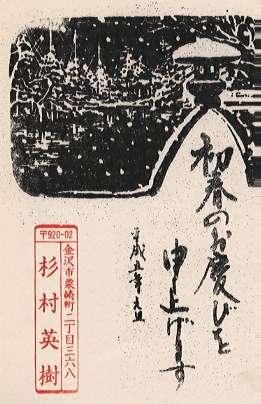 初春のお慶びを
申上げます
平成五年元旦
〒920-02
金沢市粟崎町二丁目三六八
杉村英樹